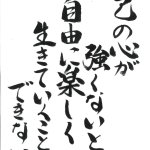 己の心が
強くないと
自由に楽しく
生きていくこと
できな